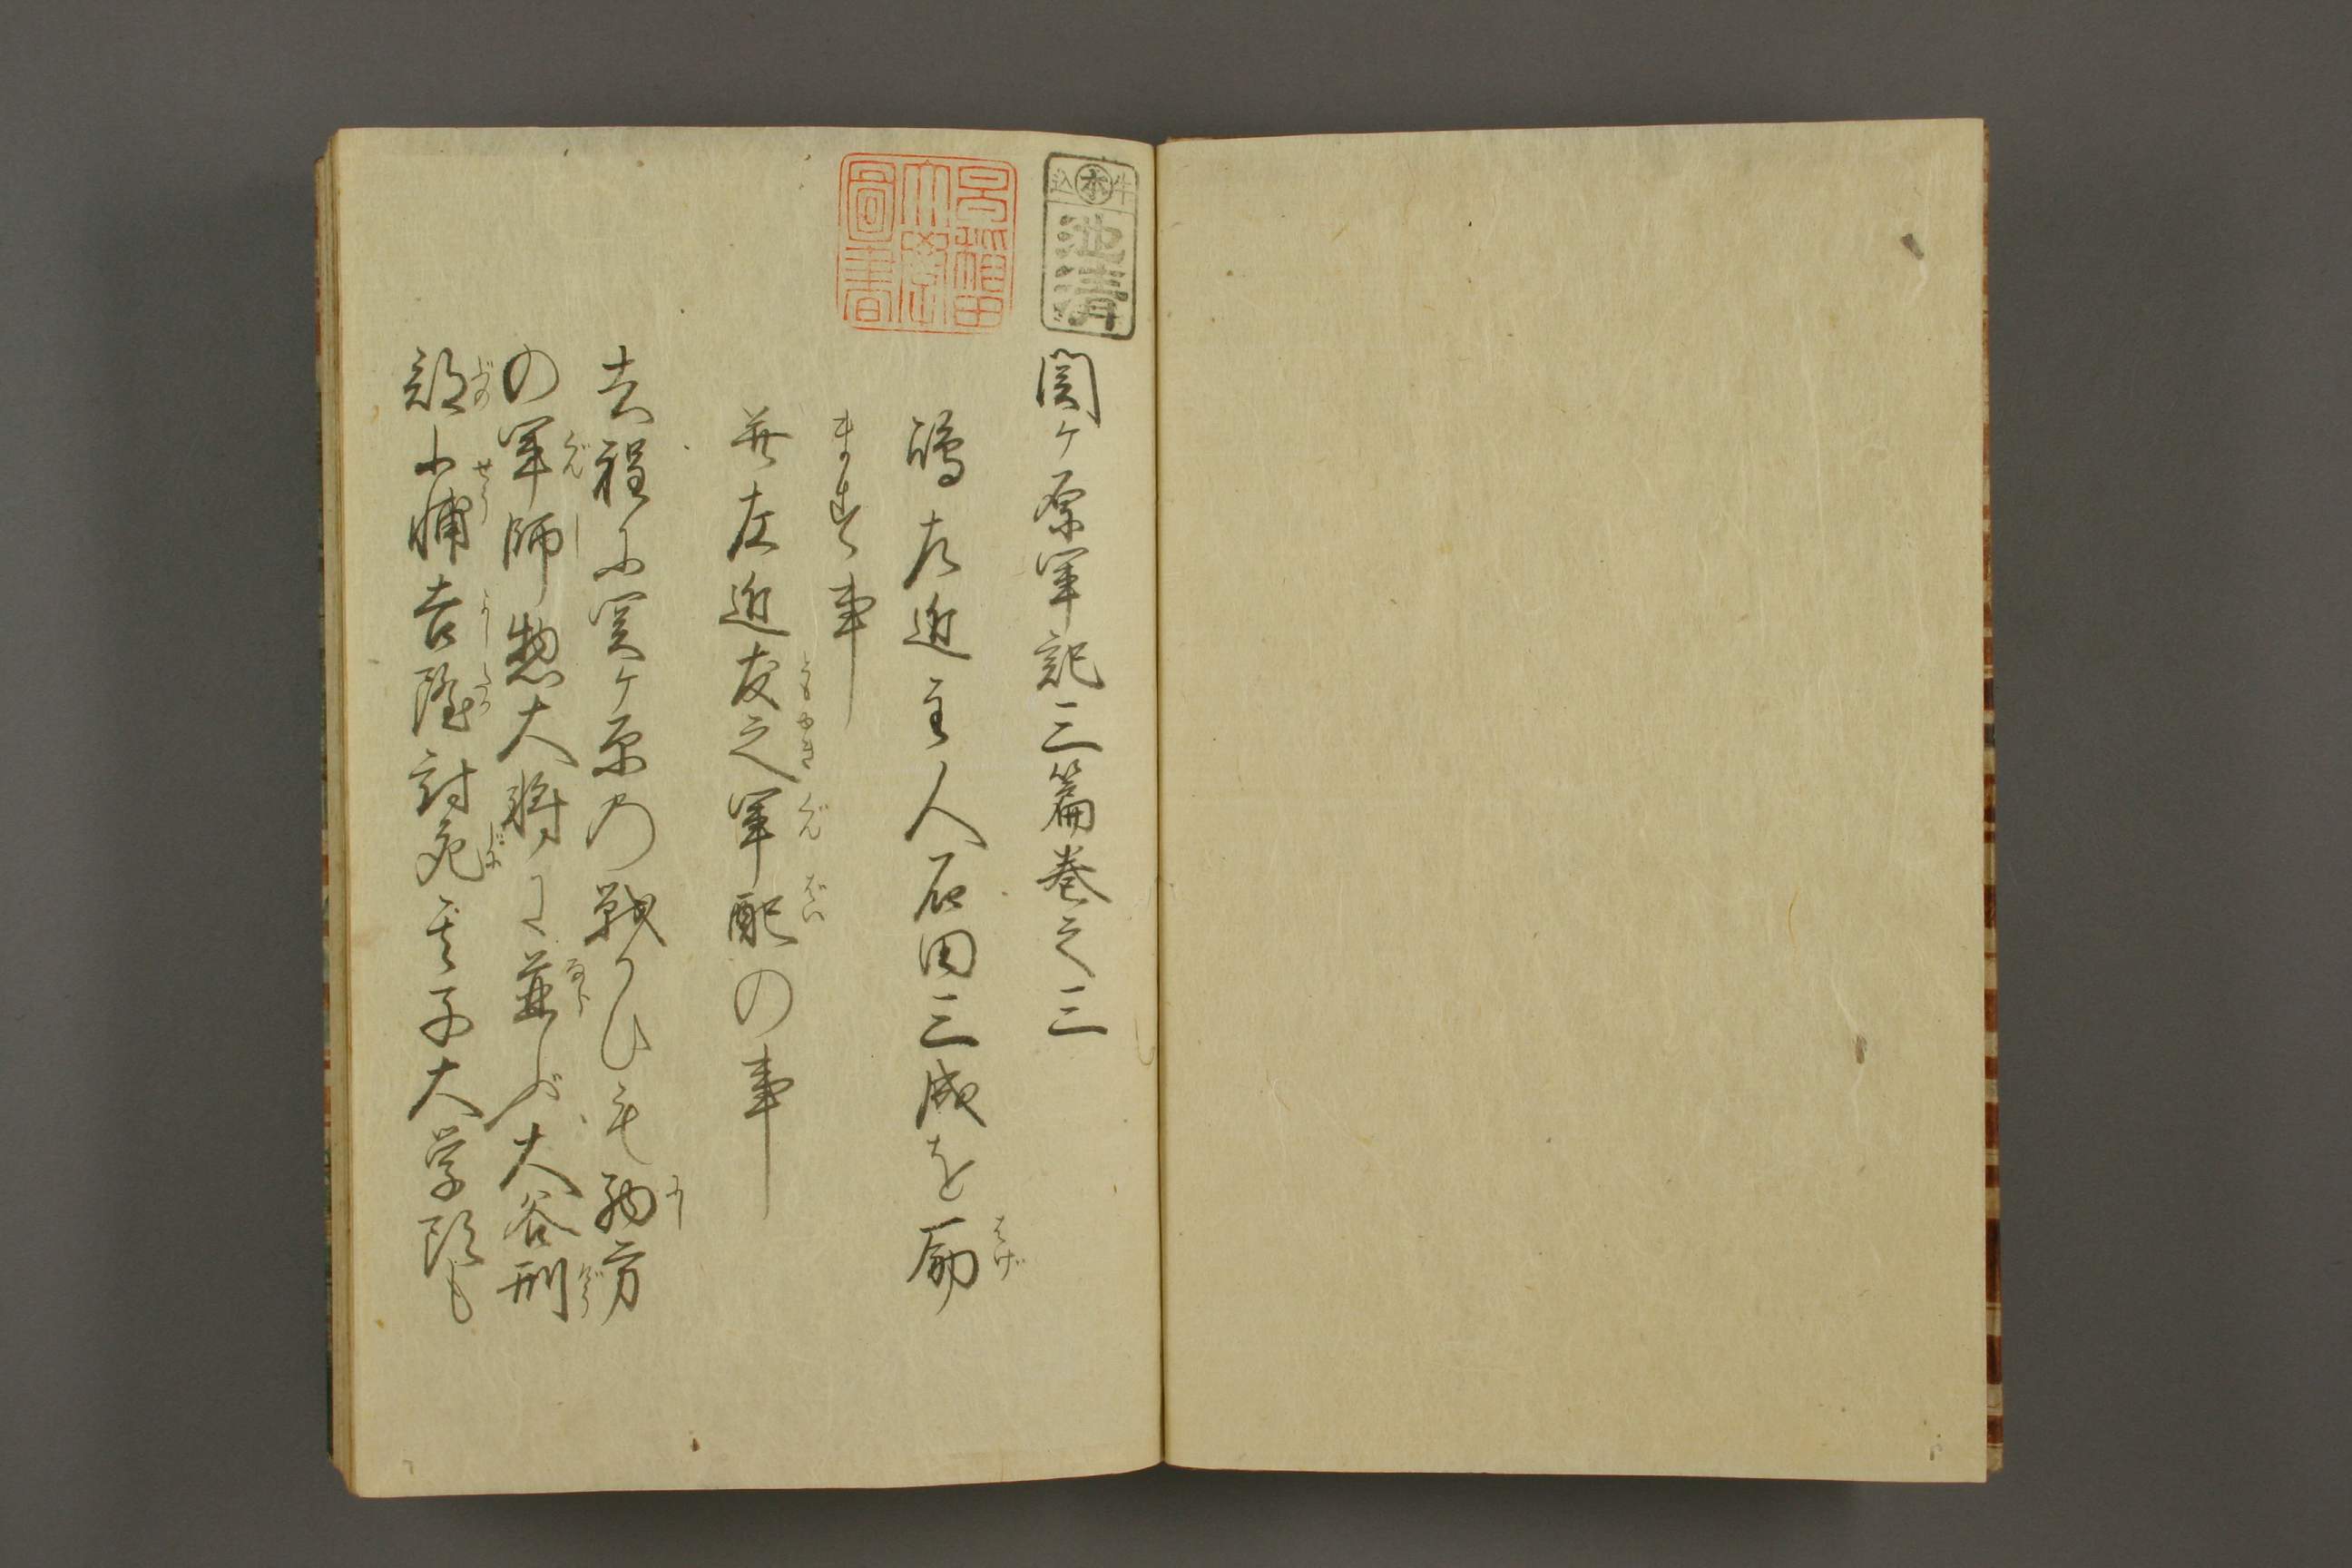 牛込
本
池清
早稲田
大学
圖書
関ケ原軍記三篇巻之三
嶋左近主人石田三成を励
ます事
并左近友之軍配の事
去程に関ケ原の戦ひも
の軍師惣大将に並ぶ大谷刑
部少輔吉隆討死其子大学頭も